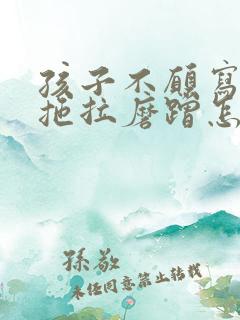 孩子不願寫
拖拉磨蹭怎
孫敬
未经同意禁止转载